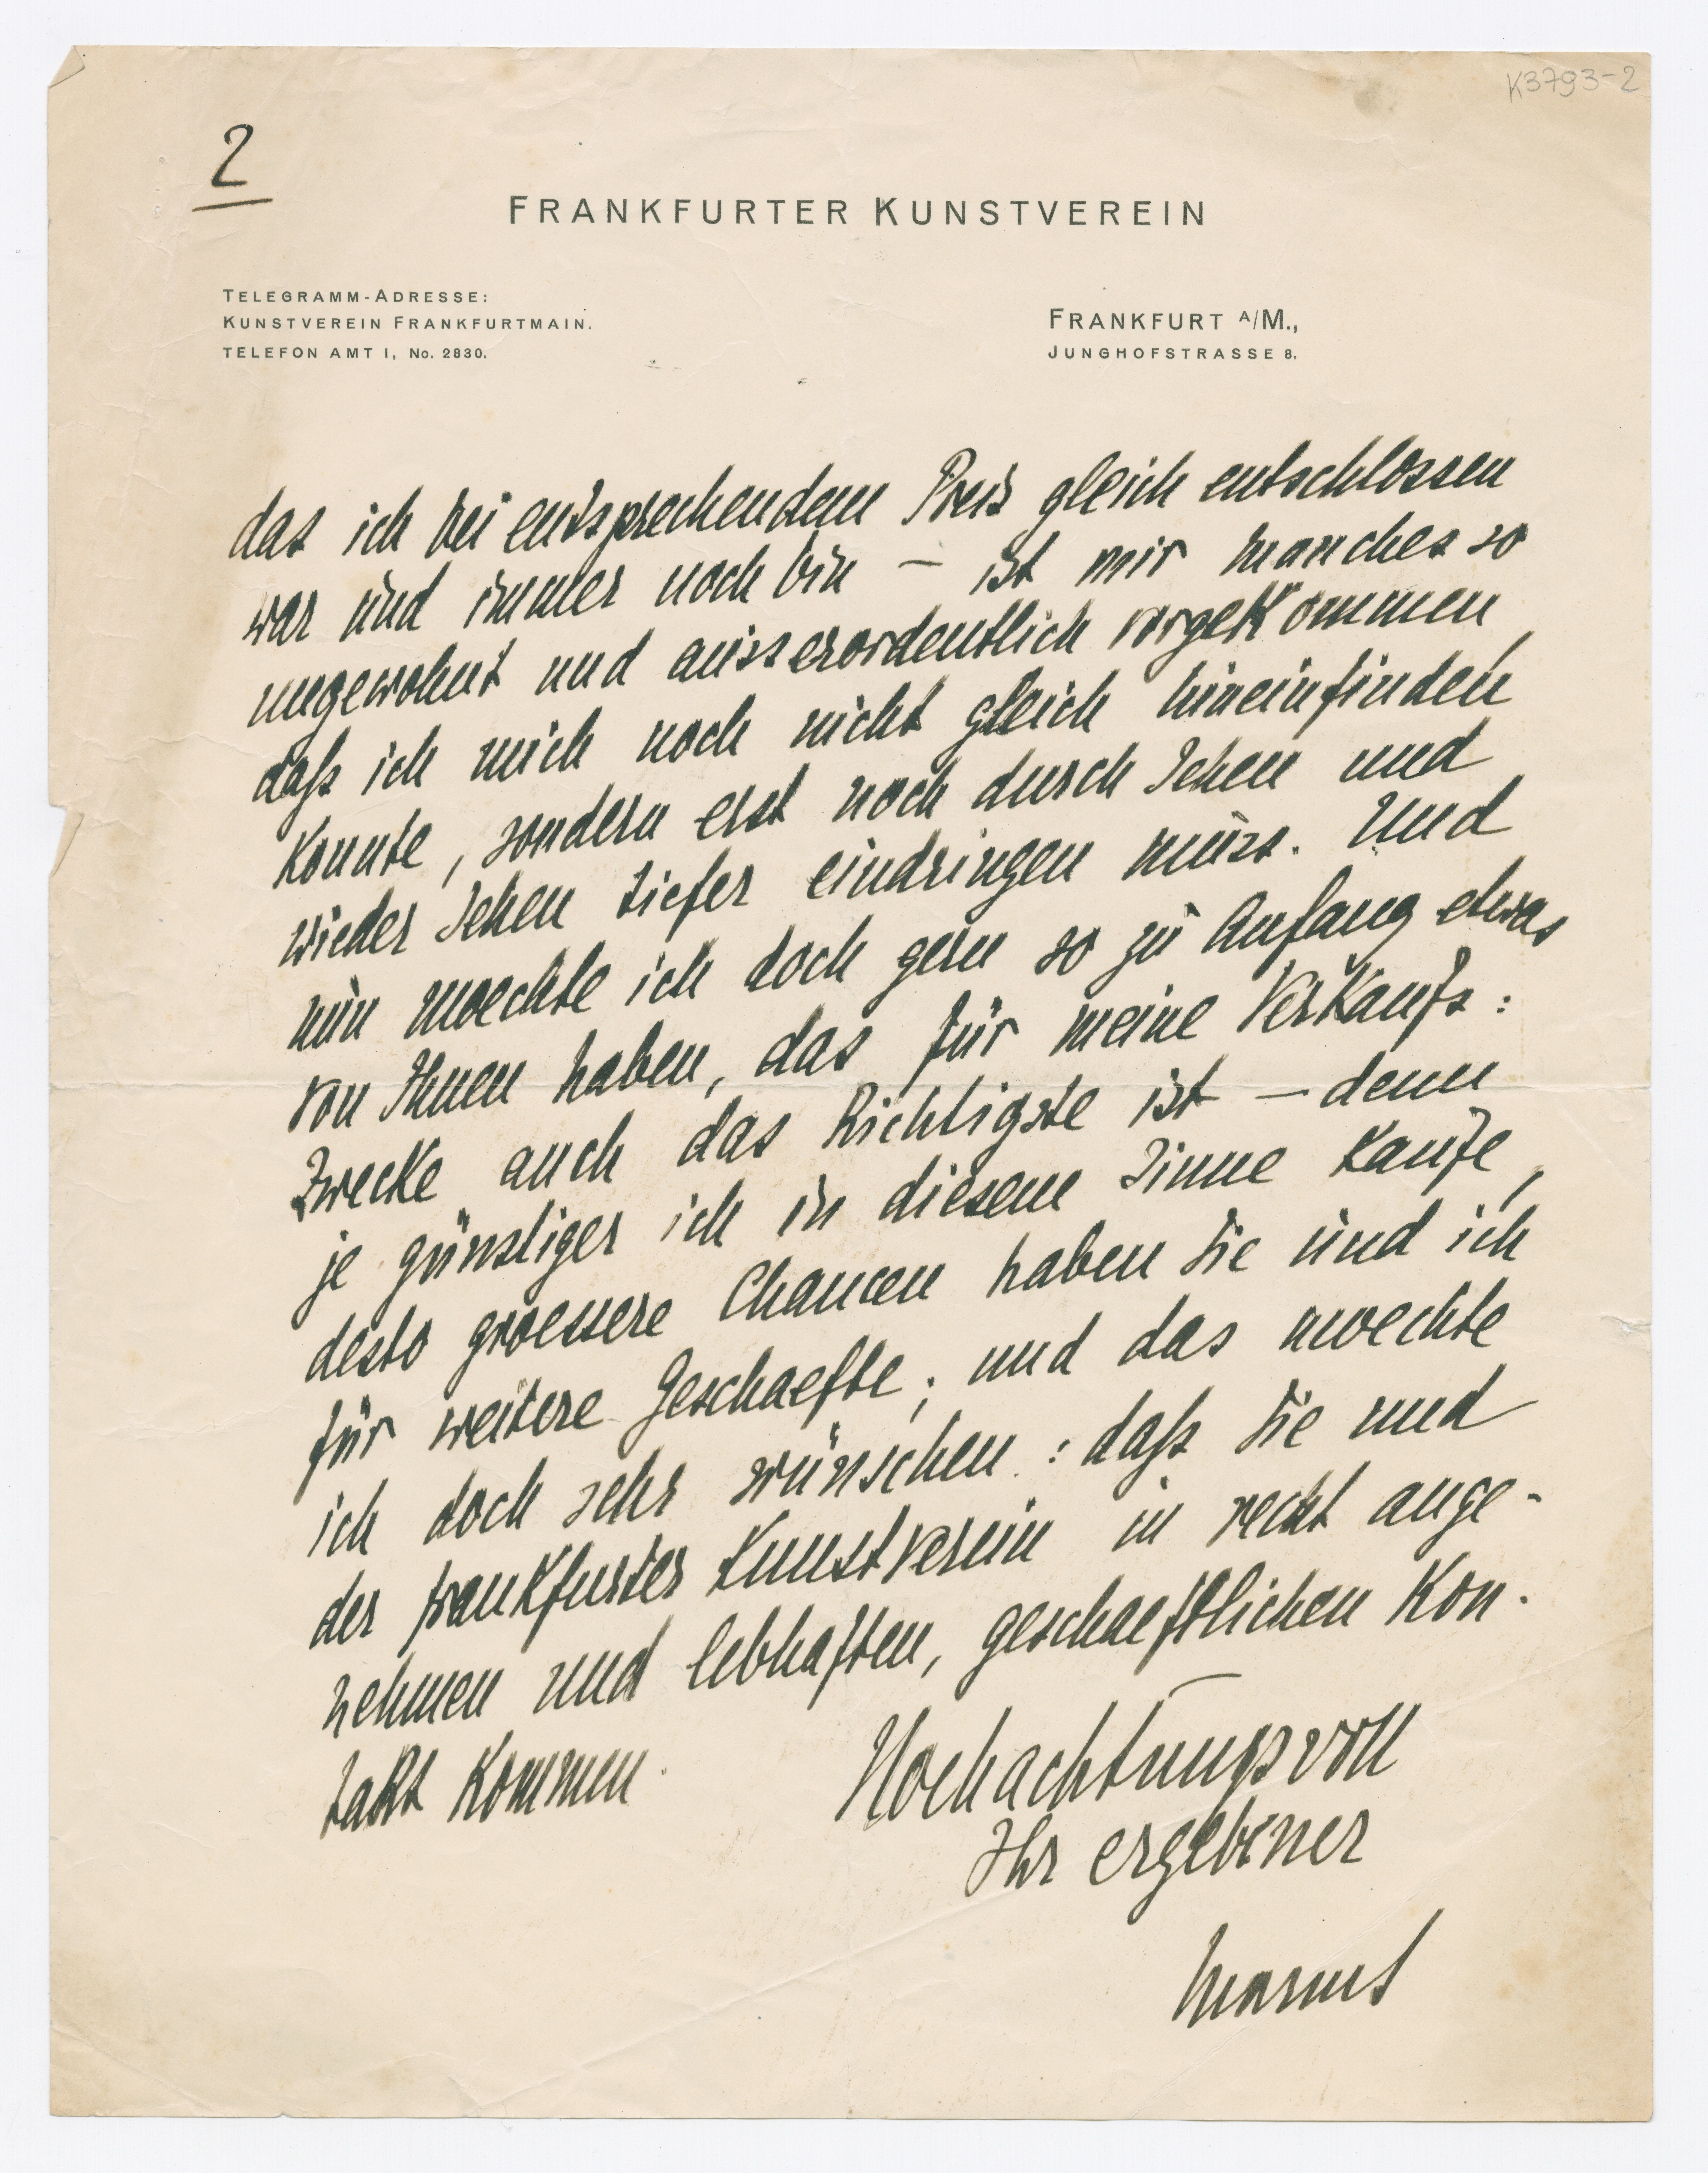 K3793-2
2
FRANKFURTER KUNSTVEREIN
TELEGRAMM-ADRESSE:
KUNSTVEREIN FRANKFURTMAIN.
TELEFON AMT I, No. 2830.
FRANKFURT A/M.,
JUNGHOFSTRASSE 8.
das ich bei entsprechendem Preis gleich entschlossen
war und immer noch bin — ist mir manches so
ungewohnt und ausserordentlich vorgekommen,
daß ich mich noch nicht gleich hineinfinden
konnte, sondern erst noch durch Sehen und
wieder Sehen tiefer eindringen muss. Und
nun moechte ich doch gern so zu Anfang etwas
von Ihnen haben, das für meine Verkaufs:
Zwecke auch das Richtigste ist — denn
je günstiger ich in diesem Sinne kaufe,
desto groessere Chancen haben Sie und ich
für weitere Geschaefte; und das moechte
ich doch sehr wünschen: daß Sie und
der Frankfurter Kunstverein in recht ange-
nehmen und lebhaften, geschaeftlichen Kon-
takt kommen.
Hochachtungsvoll
Ihr ergebener